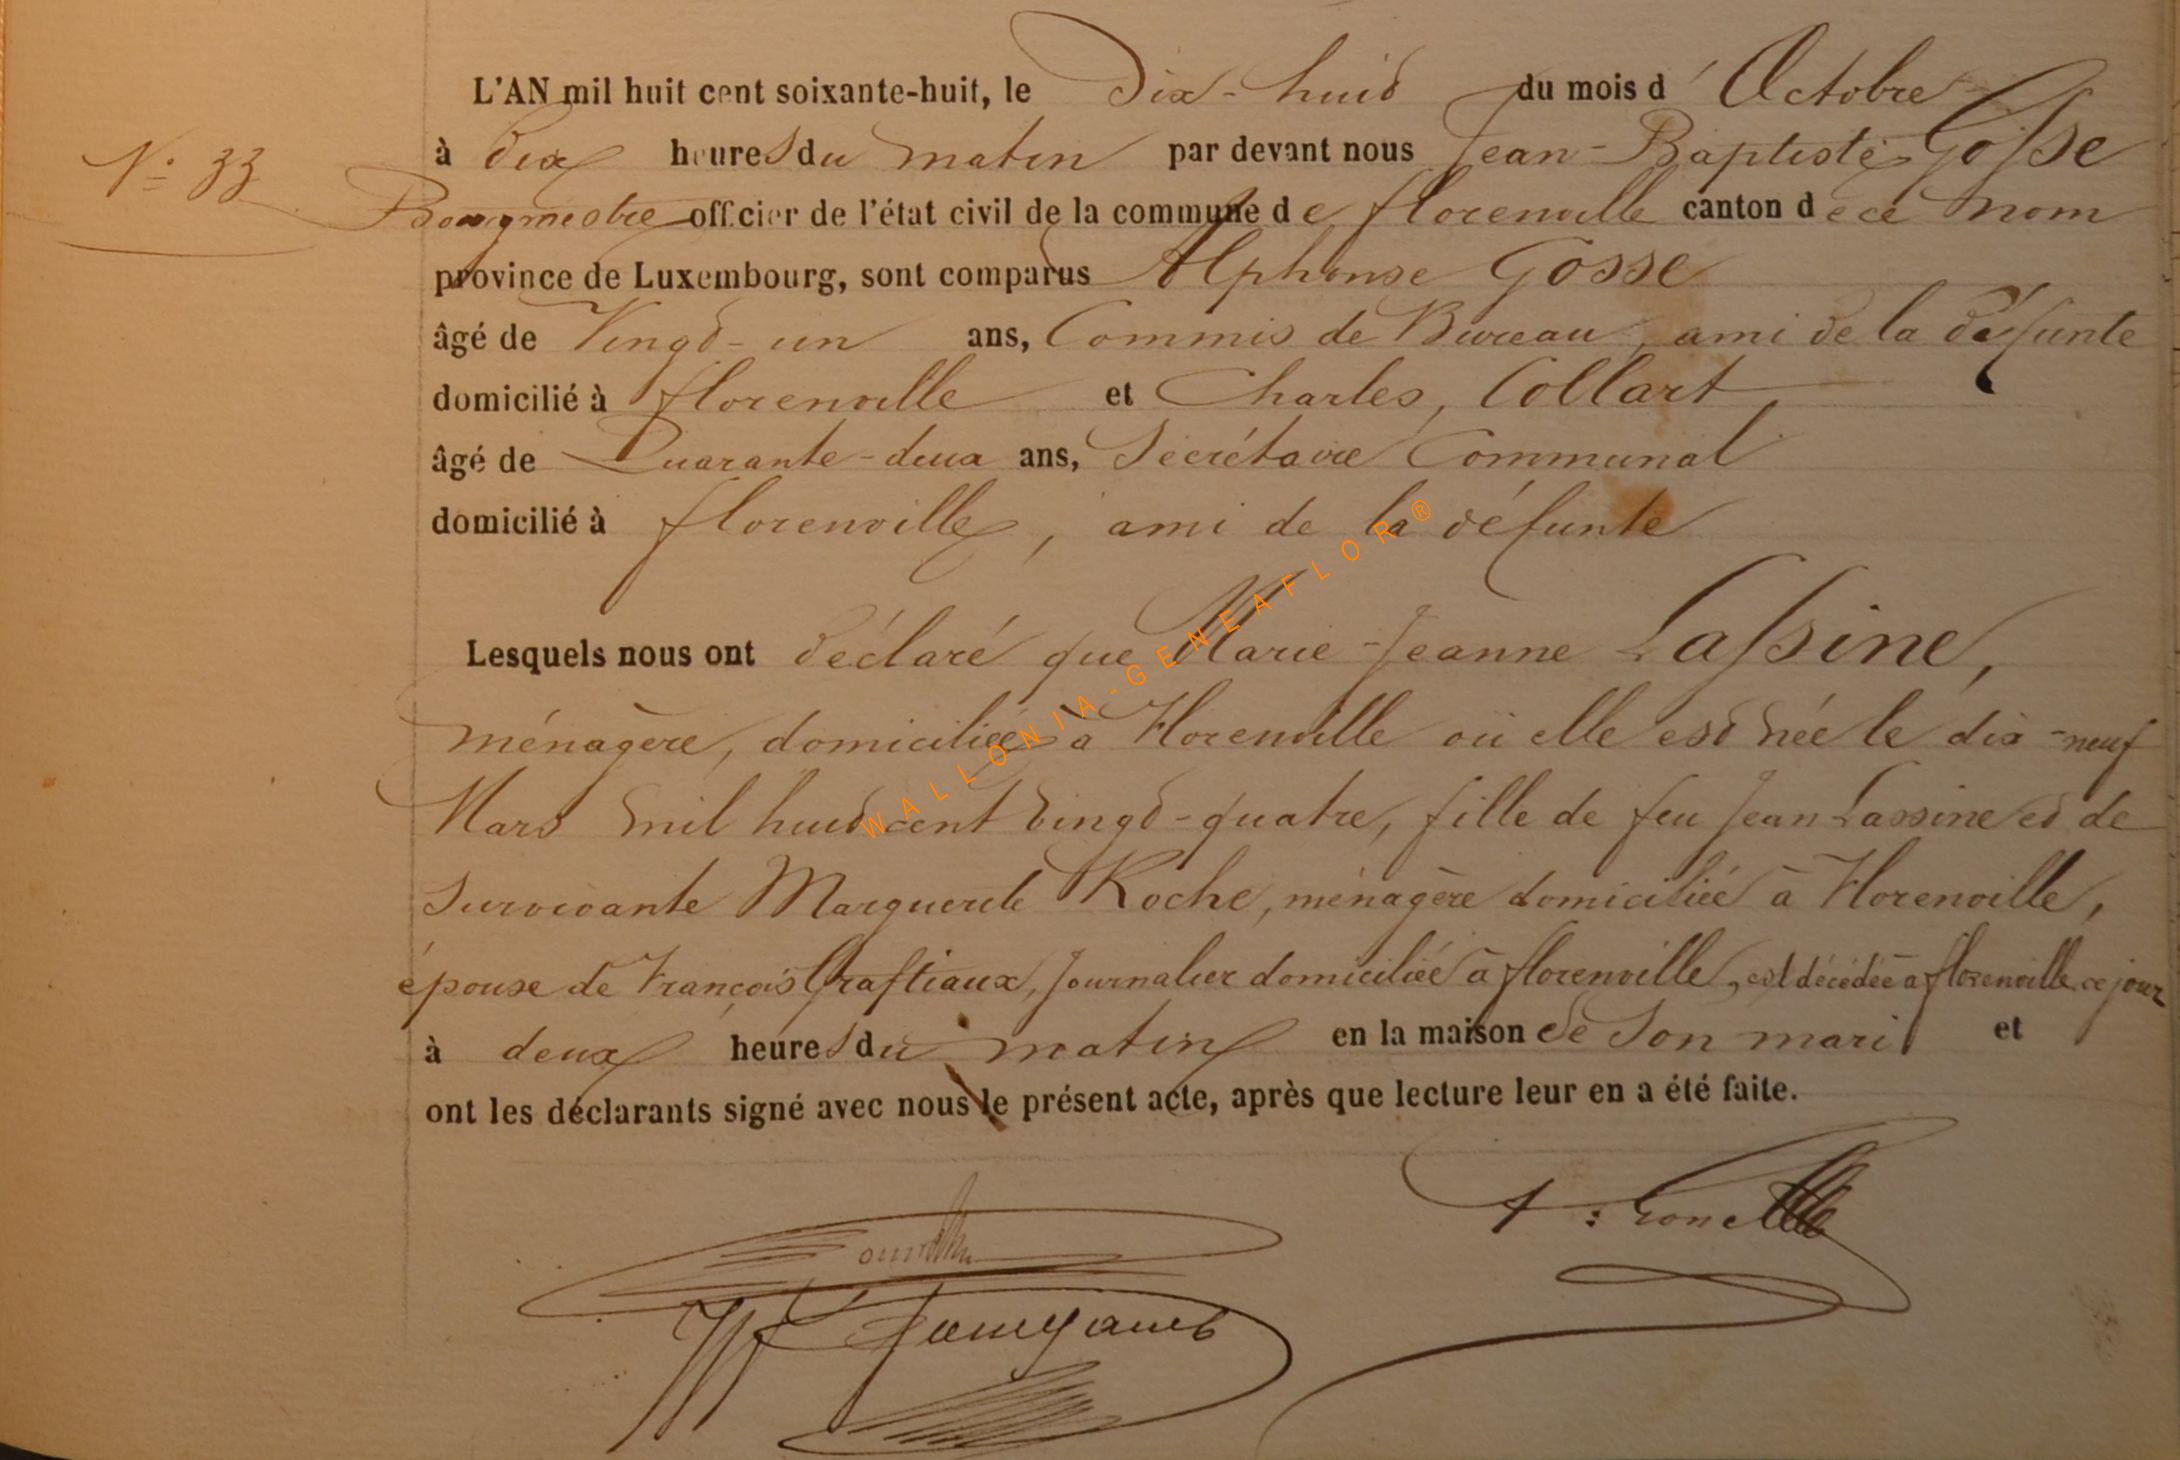 L'AN mil huit cent soixante-huit, le Dix-huit du mois d'Octobre
à dix heures du matin par devant nous Jean-Baptiste Gosse
N° 33
Bourgmestre officier de l'état civil de la commune de Florenville canton de ce nom
province de Luxembourg, sont comparus Alphonse Gosse
âgé de Vingt-un ans, Commis de Bureau, ami de la défunte
domicilié à Florenville et Charles, Collart,
âgé de Quarante-deux ans, Secrétaire Communal
domicilié à Florenville, ami de la défunte
Lesquels nous ont déclaré que Marie-Jeanne Lassine,
ménagère, domiciliée à Florenville où elle est née le dix-neuf
Mars mil huit cent vingt-quatre, fille de feu Jean Lassine et de
Survivante Marguerite Roche, ménagère domiciliée à Florenville,
épouse de François Graftiaux, Journalier domiciliée à Florenville, est décédée à Florenville ce jour
à deux heures du matin en la maison de Son mari et
ont les déclarants signé avec nous le présent acte, après que lecture leur en a été faite.
WALLONIA-GENEAFLOR®